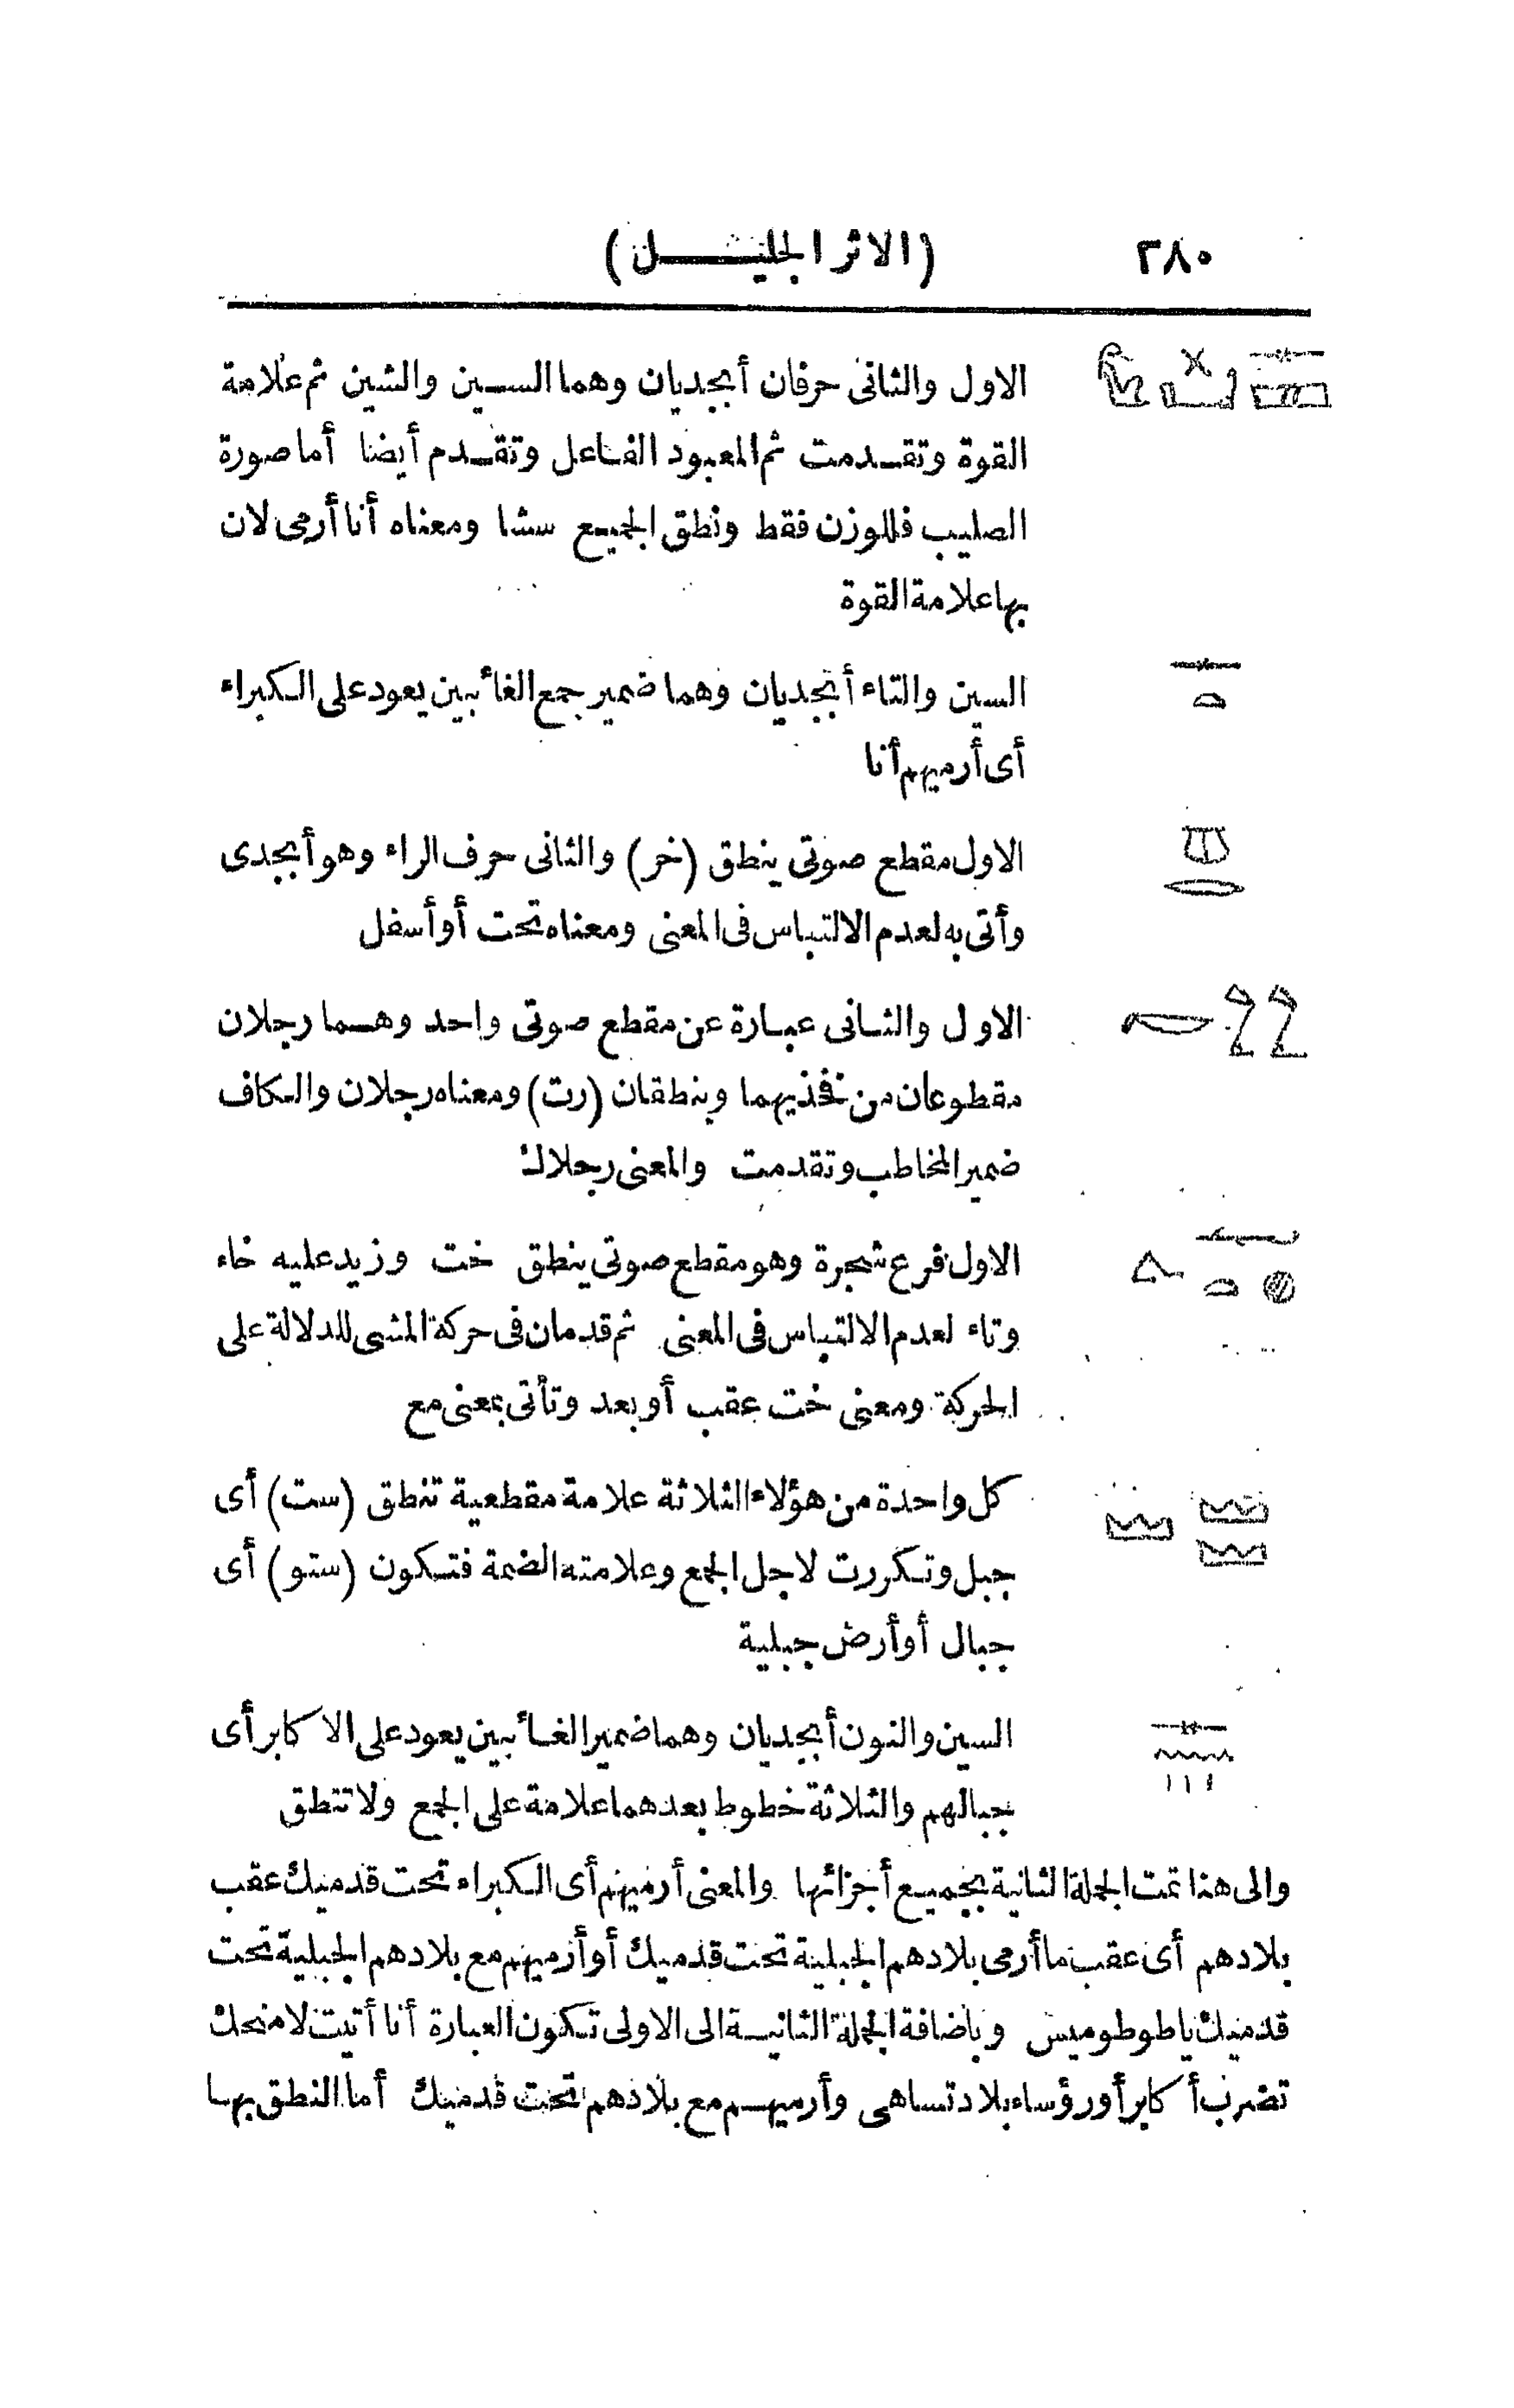 ٢٨٠ (الاثر الجليل)
الاول والثانى حرفان أبجديان وهما السين والشين ثم علامة
القوة وتقدمت ثم المعبود الفاعل وتقدم أيضا أما صورة
الصليب فللوزن فقط ونطق الجميع سشا ومعناه أنا أرمى لان
بها علامة القوة
السين والتاء أبجديان وهما ضمير جمع الغائبين يعود على الكبراء
أى أرميهم أنا
الاول مقطع صوتى ينطق (خر) والثانى حرف الراء وهو أبجدى
وأتى به لعدم الالتباس فى المعنى ومعناه تحت أو أسفل
الاول والثانى عبارة عن مقطع صوتى واحد وهما رجلان
مقطوعان من فخذيهما وينطقان (رت) ومعناه رجلان والكاف
ضمير المخاطب وتقدمت والمعنى رجلاك
الاول فرع شجرة وهو مقطع صوتى ينطق خت وزيد عليه خاء
وتاء لعدم الالتباس فى المعنى ثم قدمان فى حركة المشى للدلالة على
الحركة ومعنى خت عقب أو بعد وتأتى بمعنى مع
كل واحدة من هؤلاء الثلاثة علامة مقطعية تنطق (ست) أى
جبل وتكررت لاجل الجمع وعلامته الضمة فتكون (ستو) أى
جبال أو أرض جبلية
السين والنون أبجديان وهما ضمير الغائبين يعود على الاكابر أى
جبالهم والثلاثة خطوط بعدهما علامة على الجمع ولا تنطق
والى هنا تمت الجملة الثانية بجميع أجزائها والمعنى أرميهم أى الكبراء تحت قدميك عقب
بلادهم أى عقب ما أرمى بلادهم الجبلية تحت قدميك أو أرميهم مع بلادهم الجبلية تحت
قدميك يا طوطوميس وباضافة الجملة الثانية الى الاولى تكون العبارة أنا أتيت لامنحك
تضرب أكابر أو رؤساء بلاد تساهى وأرميهم مع بلادهم تحت قدميك أما النطق بها